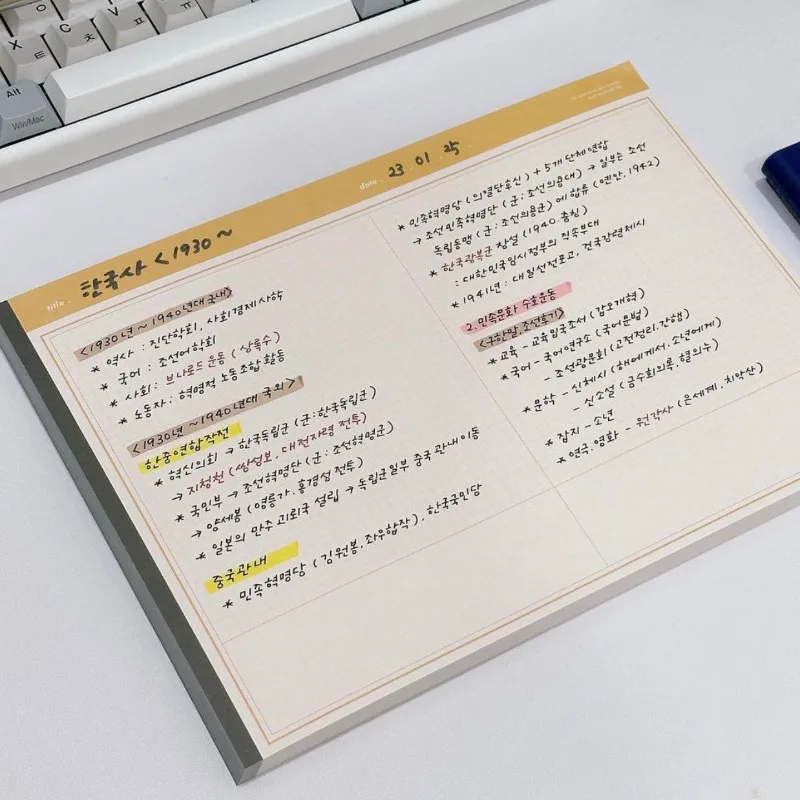 Alt
Win/Mac
X
ㅌ
C
V
ㅍ
ㅠ
title.
한국사 <1930~
date.
23 01 25
<1930년~1940년대 국내>
* 역사 : 진단학회, 사회경제사학
* 국어 : 조선어학회
* 사회 : 브나로드 운동 (상록수)
* 노동자 : 혁명적 노동조합 활동
<1930년~1940년대 국외>
한중연합작전
* 혁신의회 → 한국독립군 (군:한국독립군)
→ 지청천 (쌍성보, 대전자령 전투)
* 국민부 → 조선혁명단 (군: 조선혁명군)
→ 양세봉 (영릉가.홍경성 전투)
* 일본의 만주 괴뢰국 설립 → 독립군일부 중국 관내 이동
중국관내
* 민족혁명당 (김원봉, 좌우합작), 한국국민당
* 민족혁명당 (의열단후신) + 5개 단체연합
→ 조선민족혁명단 (군: 조선의용대) → 일부는 조선
독립동맹 (군: 조선의용군)에 합류 (연안, 1942)
* 한국광복군 창설 (1940. 충칭)
: 대한민국임시정부의 직속부대
* 1941년 : 대일선전포고, 건국강령제시
2. 민족문화 수호운동
<구한말, 조선후기>
* 교육 - 교육입국조서 (갑오개혁)
* 국어 - 국어연구소 (국어문법)
- 조선광문회 (고전정리, 간행)
* 문학 - 신체시 (해에게서.소년에게)
- 신소설 (금수회의록, 혈의누)
* 잡지 - 소년
* 연극.영화 - 원각사 (은세계. 치악산)